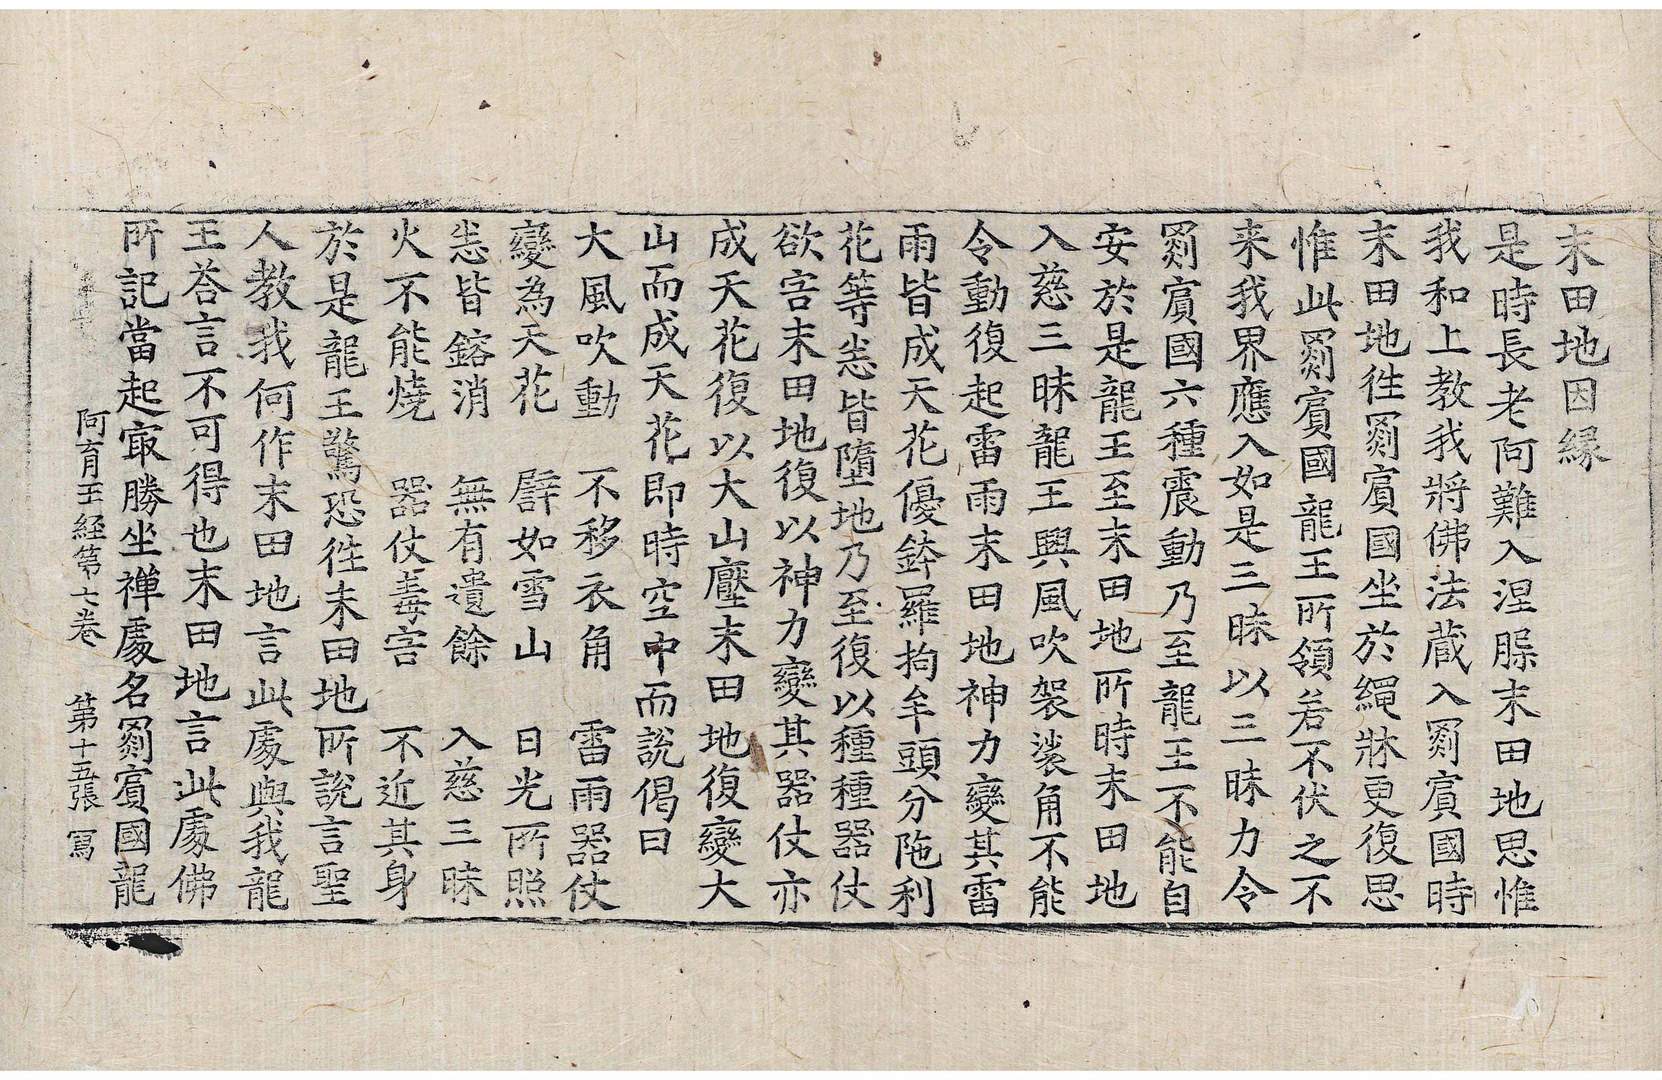 末田地因緣
是時長老阿難入涅槃末田地思惟
我和上教我將佛法蔵入罽賓國時
末田地徃罽賓國坐於繩牀更復思
惟此罽賓國龍王所領若不伏之不
来我界應入如是三昧以三昧力令
罽賓國六種震動乃至龍王不能自
安於是龍王至末田地所時末田地
入慈三昧龍王興風吹袈裟角不能
令動復起雷雨末田地神力變其雷
雨皆成天花優鉢羅拘牟頭分陁利
花等恙皆墮地乃至復以種種器仗
欲害末田地復以神力變其器仗亦
成天花復以大山壓末田地復變大
山而成天花即時空中而說偈曰
大風吹動　不移衣角　雷雨器仗
變為天花　譬如雪山　日光所照
恙皆鎔消　無有遺餘　入慈三昧
火不能燒　器仗毒害　不近其身
於是龍王驚恐徃末田地所說言聖
人教我何作末田地言此處與我龍
王荅言不可得也末田地言此處佛
所記當起寂勝坐禪處名罽賓國龍
阿育王經第七卷　第十五張　寫